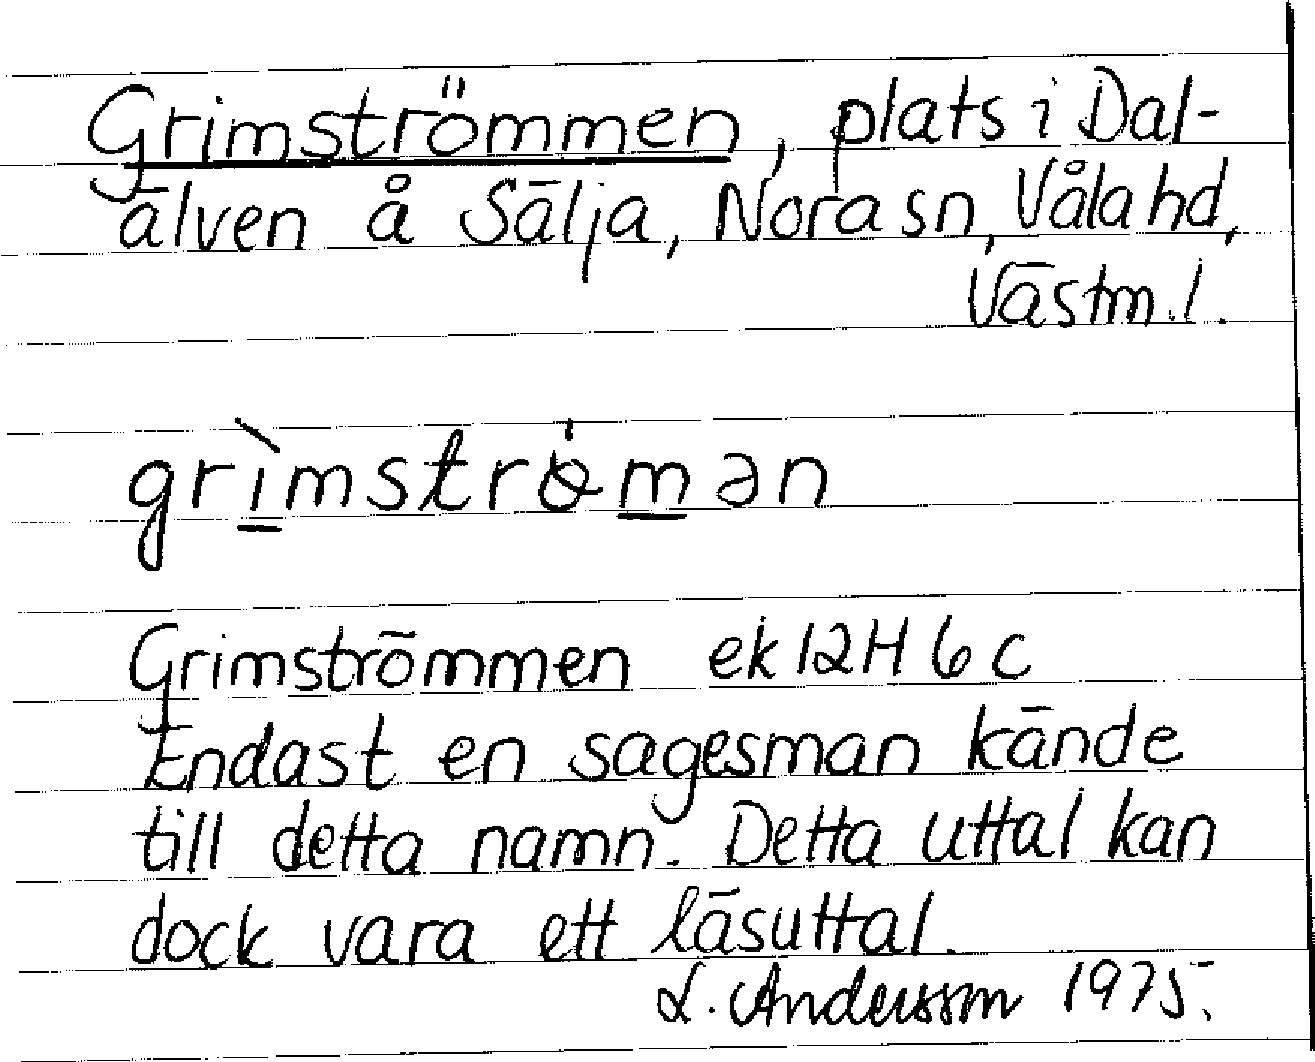 Grimströmmen, plats i Dal-
älven å Sälja, Nora sn, Våla hd,
Västm. l.
grìmströmən
Grimströmmen ek 12H 6c
Endast en sagesman kände
till detta namn. Detta uttal kan
dock vara ett läsuttal.
L. Andersson 1975.